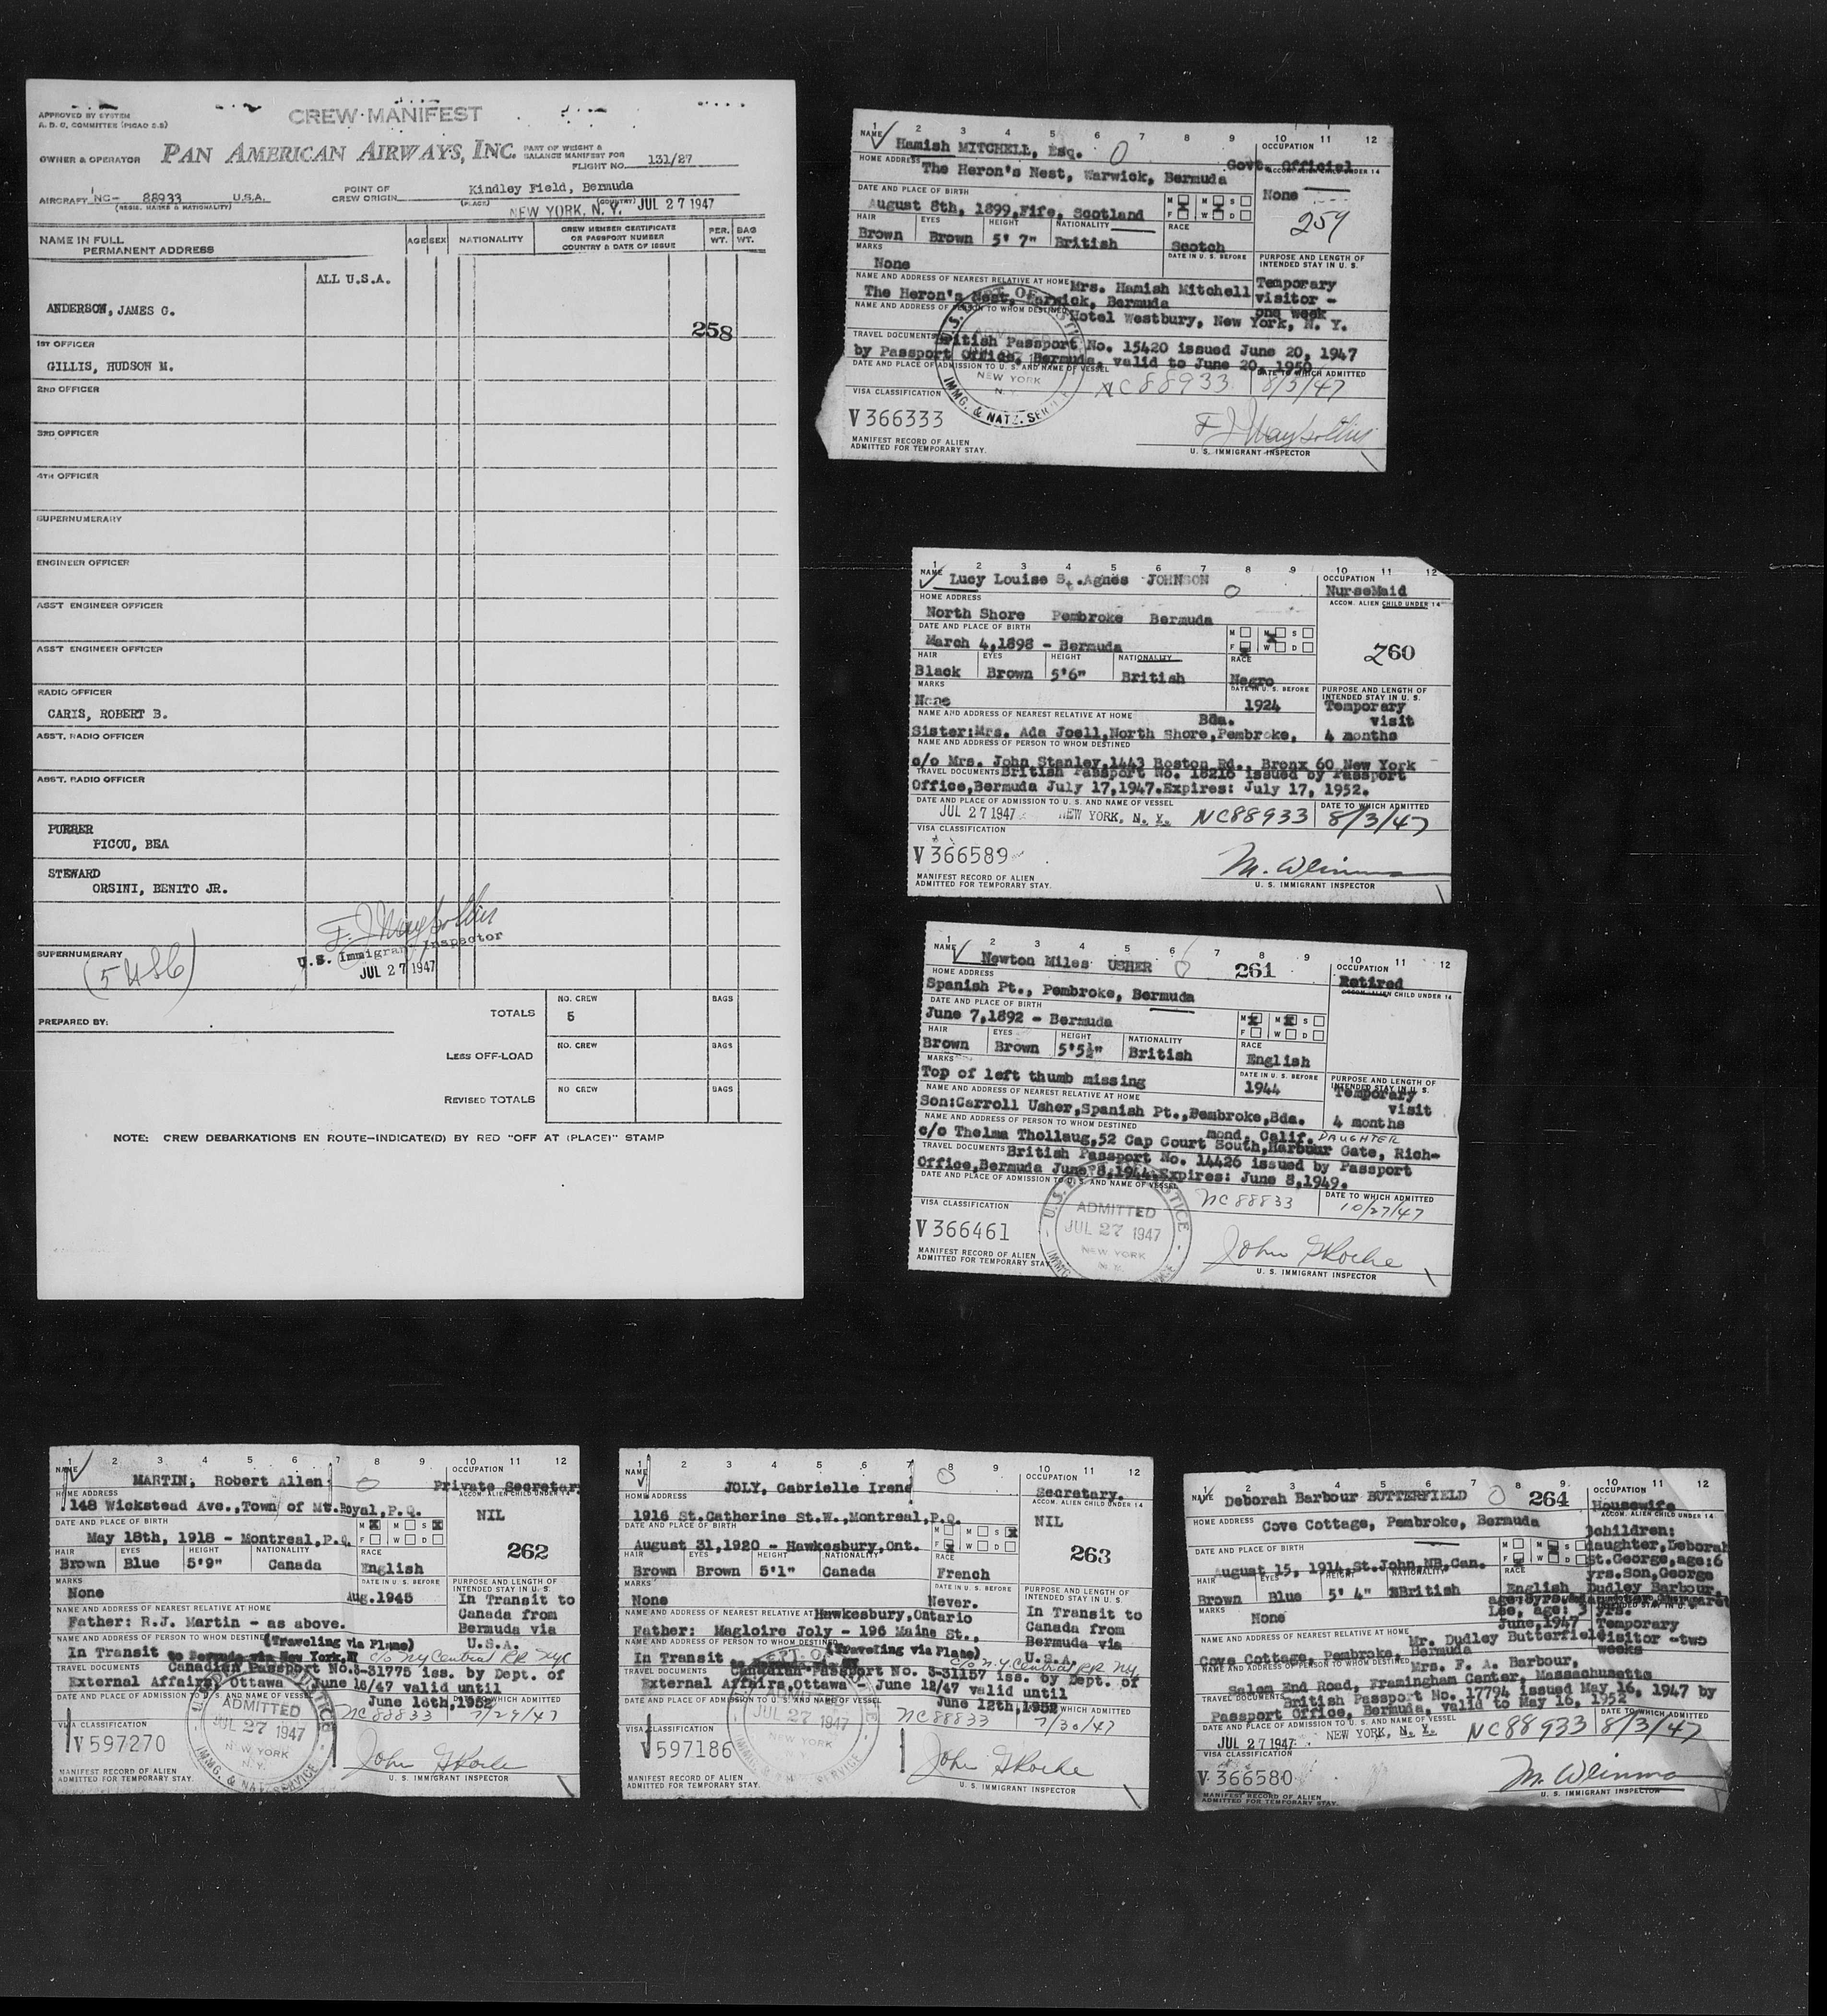 APPROVED BY SYSTEM
A. D. C. COMMITTEE (PICAO 2.2)
CREW MANIFEST
OWNER & OPERATOR PAN AMERICAN AIRWAYS, INC. PART OF WEIGHT & BALANCE MANIFEST FOR FLIGHT NO. 131/27
AIRCRAFT NC- 88933 U.S.A. POINT OF CREW ORIGIN Kindley Field, Bermuda
(REGIS. MARKS & NATIONALITY) (PLACE) (COUNTRY)
NEW YORK, N. Y. JUL 27 1947
NAME IN FULL PERMANENT ADDRESS AGE SEX NATIONALITY CREW MEMBER CERTIFICATE OR PASSPORT NUMBER COUNTRY & DATE OF ISSUE PER. WT. BAG WT.
ALL U.S.A.
ANDERSON, JAMES G.
258
1ST OFFICER
GILLIS, HUDSON M.
2ND OFFICER
3RD OFFICER
4TH OFFICER
SUPERNUMERARY
ENGINEER OFFICER
ASS'T ENGINEER OFFICER
ASS'T ENGINEER OFFICER
RADIO OFFICER
CARIS, ROBERT B.
ASS'T. RADIO OFFICER
ASS'T. RADIO OFFICER
PURSER
PICOU, BEA
STEWARD
ORSINI, BENITO JR.
U.S. Immigrant Inspector
SUPERNUMERARY
JUL 27 1947
(5 USC)
PREPARED BY:
TOTALS NO. CREW 5 BAGS
LESS OFF-LOAD NO. CREW BAGS
REVISED TOTALS NO CREW BAGS
NOTE: CREW DEBARKATIONS EN ROUTE—INDICATE(D) BY RED "OFF AT (PLACE)" STAMP
1 2 3 4 5 6 7 8 9 10 11 12
NAME Hamish MITCHELL, Esq. 0 OCCUPATION Govt. Official
HOME ADDRESS The Heron's Nest, Warwick, Bermuda ACCOM. ALIEN CHILD UNDER 14
DATE AND PLACE OF BIRTH M M S None
August 8th, 1899, Fife, Scotland F W D 259
HAIR EYES HEIGHT NATIONALITY RACE
Brown Brown 5' 7" British Scotch
MARKS DATE IN U. S. BEFORE PURPOSE AND LENGTH OF INTENDED STAY IN U. S.
None
NAME AND ADDRESS OF NEAREST RELATIVE AT HOME Mrs. Hamish Mitchell Temporary
The Heron's Nest, Warwick, Bermuda visitor -
NAME AND ADDRESS OF PERSON TO WHOM DESTINED one week
Hotel Westbury, New York, N. Y.
TRAVEL DOCUMENTS British Passport No. 15420 issued June 20, 1947
by Passport Office, Bermuda, valid to June 20, 1950
DATE AND PLACE OF ADMISSION TO U. S. AND NAME OF VESSEL DATE TO WHICH ADMITTED
NEW YORK N.Y. NC88933 8/3/47
VISA CLASSIFICATION IMMG. & NATZ. SERVICE
V 366333
MANIFEST RECORD OF ALIEN
ADMITTED FOR TEMPORARY STAY. U. S. IMMIGRANT INSPECTOR
1 2 3 4 5 6 7 8 9 10 11 12
NAME Lucy Louise St. Agnes JOHNSON 0 OCCUPATION NurseMaid
HOME ADDRESS ACCOM. ALIEN CHILD UNDER 14
North Shore Pembroke Bermuda
DATE AND PLACE OF BIRTH M M S
March 4,1898 - Bermuda F W D 260
HAIR EYES HEIGHT NATIONALITY RACE
Black Brown 5'6" British Negro
MARKS DATE IN U. S. BEFORE PURPOSE AND LENGTH OF INTENDED STAY IN U. S.
None 1924 Temporary
NAME AND ADDRESS OF NEAREST RELATIVE AT HOME Bda. visit
Sister:Mrs. Ada Joell,North Shore,Pembroke, 4 months
NAME AND ADDRESS OF PERSON TO WHOM DESTINED
c/o Mrs. John Stanley,1443 Boston Rd., Bronx 60 New York
TRAVEL DOCUMENTS British Passport No. 18216 issued by Passport
Office,Bermuda July 17,1947.Expires: July 17, 1952.
DATE AND PLACE OF ADMISSION TO U. S. AND NAME OF VESSEL DATE TO WHICH ADMITTED
JUL 27 1947 NEW YORK, N. Y. NC88933 8/3/47
VISA CLASSIFICATION
V 366589
MANIFEST RECORD OF ALIEN
ADMITTED FOR TEMPORARY STAY. U. S. IMMIGRANT INSPECTOR
1 2 3 4 5 6 7 8 9 10 11 12
NAME Newton Miles USHER 0 261 OCCUPATION Retired
HOME ADDRESS ACCOM. ALIEN CHILD UNDER 14
Spanish Pt., Pembroke, Bermuda
DATE AND PLACE OF BIRTH
June 7,1892 - Bermuda M M S F W D
HAIR EYES HEIGHT NATIONALITY RACE
Brown Brown 5'5½" British English
MARKS DATE IN U. S. BEFORE PURPOSE AND LENGTH OF INTENDED STAY IN U. S.
Top of left thumb missing 1944 Temporary
NAME AND ADDRESS OF NEAREST RELATIVE AT HOME visit
Son:Carroll Usher,Spanish Pt.,Pembroke,Bda. 4 months
NAME AND ADDRESS OF PERSON TO WHOM DESTINED mond, Calif. DAUGHTER
c/o Thelma Thollaug,52 Cap Court South,Harbour Gate, Rich-
TRAVEL DOCUMENTS British Passport No. 14426 issued by Passport
Office,Bermuda June 8,1944.Expires: June 8,1949.
DATE AND PLACE OF ADMISSION TO U. S. AND NAME OF VESSEL DATE TO WHICH ADMITTED
NC88833 10/27/47
VISA CLASSIFICATION ADMITTED
V 366461 JUL 27 1947
NEW YORK N.Y.
MANIFEST RECORD OF ALIEN
ADMITTED FOR TEMPORARY STAY U. S. IMMIGRANT INSPECTOR
1 2 3 4 5 6 7 8 9 10 11 12
NAME MARTIN, Robert Allen 0 OCCUPATION Private Secretary
HOME ADDRESS ACCOM. ALIEN CHILD UNDER 14
148 Wickstead Ave.,Town of Mt.Royal,P.Q. NIL
DATE AND PLACE OF BIRTH M M S
May 18th, 1918 - Montreal,P.Q. F W D 262
HAIR EYES HEIGHT NATIONALITY RACE
Brown Blue 5'9" Canada English
MARKS DATE IN U. S. BEFORE PURPOSE AND LENGTH OF INTENDED STAY IN U. S.
None Aug.1945 In Transit to
NAME AND ADDRESS OF NEAREST RELATIVE AT HOME Canada from
Father: R.J. Martin - as above. Bermuda via
NAME AND ADDRESS OF PERSON TO WHOM DESTINED (Traveling via Plane) U.S.A.
In Transit to Bermuda via New York,NY c/o NY Central RR NYC
TRAVEL DOCUMENTS Canadian Passport No.3-31775 iss. by Dept. of
External Affairs, Ottawa - June 18/47 valid until
DATE AND PLACE OF ADMISSION TO U. S. AND NAME OF VESSEL June 18th,1952 DATE TO WHICH ADMITTED
ADMITTED JUL 27 1947 NEW YORK N.Y. NC88833 7/29/47
VISA CLASSIFICATION
V 597270 IMMG. & NATZ. SERVICE
MANIFEST RECORD OF ALIEN
ADMITTED FOR TEMPORARY STAY. U. S. IMMIGRANT INSPECTOR
1 2 3 4 5 6 7 8 9 10 11 12
NAME JOLY, Gabrielle Irene 0 OCCUPATION Secretary.
HOME ADDRESS ACCOM. ALIEN CHILD UNDER 14
1916 St.Catherine St.W.,Montreal,P.Q. NIL
DATE AND PLACE OF BIRTH M M S
August 31,1920 - Hawkesbury,Ont. F W D 263
HAIR EYES HEIGHT NATIONALITY RACE
Brown Brown 5'1" Canada French
MARKS DATE IN U. S. BEFORE PURPOSE AND LENGTH OF INTENDED STAY IN U. S.
None Never.
NAME AND ADDRESS OF NEAREST RELATIVE AT Hawkesbury,Ontario In Transit to
Father: Magloire Joly - 196 Maine St., Canada from
NAME AND ADDRESS OF PERSON TO WHOM DESTINED (Traveling via Plane) Bermuda via
In Transit to Bermuda via NY U.S.A. c/o N.Y. Central RR NY.
TRAVEL DOCUMENTS Canadian Passport No. 3-31157 iss. by Dept. of
External Affairs,Ottawa - June 12/47 valid until
DATE AND PLACE OF ADMISSION TO U. S. AND NAME OF VESSEL June 12th,1952 WHICH ADMITTED
JUL 27 1947 NEW YORK NC88833 7/30/47
VISA CLASSIFICATION
V 597186
MANIFEST RECORD OF ALIEN
ADMITTED FOR TEMPORARY STAY. U. S. IMMIGRANT INSPECTOR
1 2 3 4 5 6 7 8 9 10 11 12
NAME Deborah Barbour BUTTERFIELD 0 264 OCCUPATION Housewife
HOME ADDRESS Cove Cottage, Pembroke, Bermuda ACCOM. ALIEN CHILD UNDER 14
3children:
DATE AND PLACE OF BIRTH M M S daughter, Deborah
August 15, 1914,St.John,NB,Can. F W D St.George,age:6
HAIR EYES HEIGHT NATIONALITY RACE yrs.Son,George
Brown Blue 5' 4" British English Dudley Barbour,
MARKS None Lee, age: 3 yrs.
June,1947 Temporary
NAME AND ADDRESS OF NEAREST RELATIVE AT HOME Mr. Dudley Butterfield visitor -two
Cove Cottage, Pembroke, Bermuda weeks
NAME AND ADDRESS OF PERSON TO WHOM DESTINED Mrs. F. A. Barbour,
Salem End Road, Framingham Center, Massachusetts
TRAVEL DOCUMENTS British Passport No. 17794 issued May 16, 1947 by
Passport Office, Bermuda, valid to May 16, 1952
DATE AND PLACE OF ADMISSION TO U. S. AND NAME OF VESSEL DATE TO WHICH ADMITTED
JUL 27 1947 NEW YORK, N. Y. NC88933 8/3/47
VISA CLASSIFICATION
V 366580
MANIFEST RECORD OF ALIEN
ADMITTED FOR TEMPORARY STAY. U. S. IMMIGRANT INSPECTOR